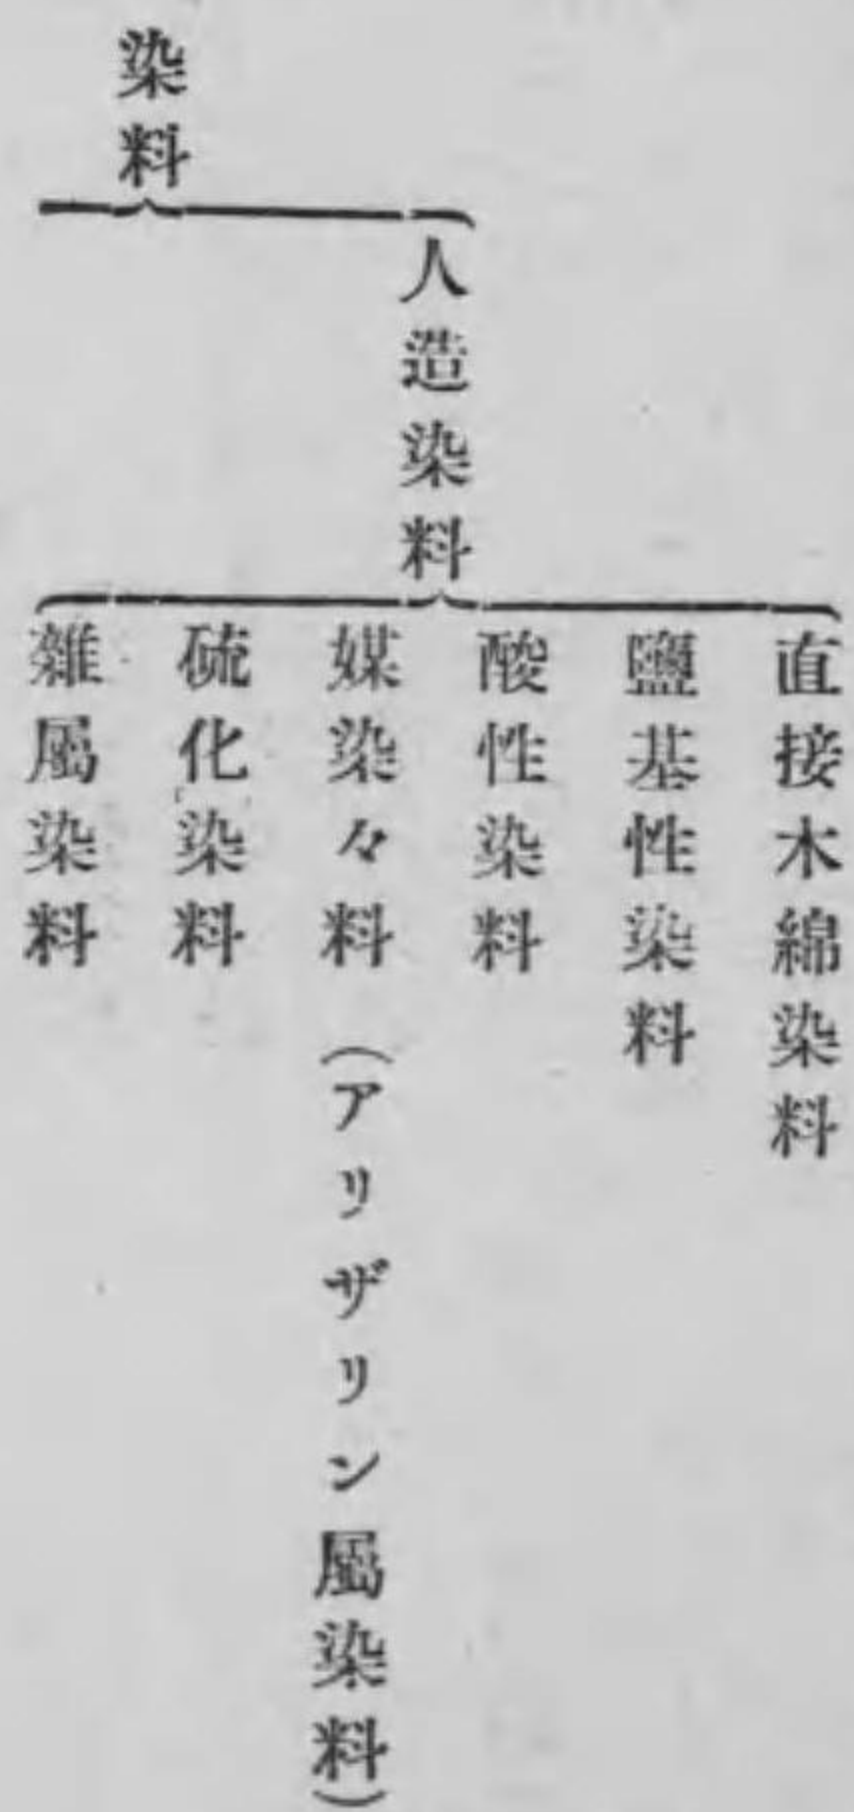 染料
人造染料
直接木綿染料
鹽基性染料
酸性染料
媒染々料（アリザリン屬染料）
硫化染料
雜屬染料